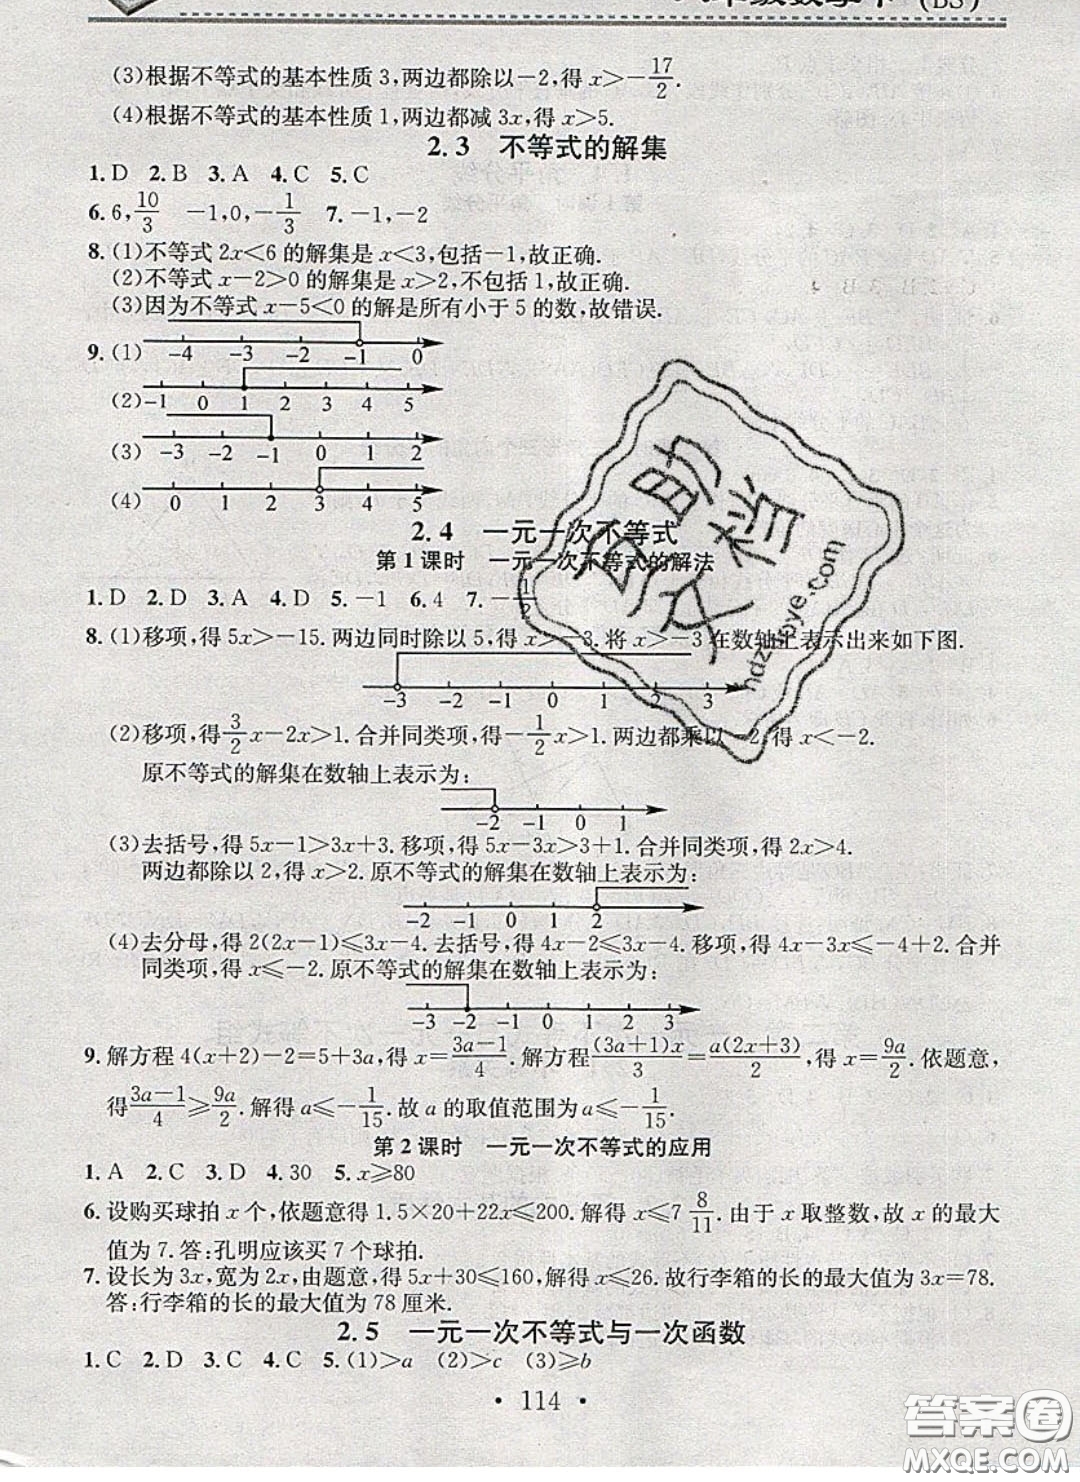 (BS)
(3)根据不等式的基本性质 3,两边都除以−2,得 x>−17/2.
(4)根据不等式的基本性质 1,两边都减 3x,得 x>5.
2.3 不等式的解集
1.D 2.B 3.A 4.C 5.C
6.6,10/3 −1,0,−1/3 7.−1,−2
8.(1)不等式 2x<6 的解集是 x<3,包括−1,故正确.
(2)不等式 x−2>0 的解集是 x>2,不包括 1,故正确.
(3)因为不等式 x−5<0 的解是所有小于 5 的数,故错误.
9.(1) −4 −3 −2 −1 0
(2) −1 0 1 2 3 4 5
(3) −3 −2 −1 0 1 2
(4) 0 1 2 3 4 5
2.4 一元一次不等式
第 1 课时 一元一次不等式的解法
1.D 2.D 3.A 4.D 5.−1 6.4 7.−1/2
8.(1)移项,得 5x>−15.两边同时除以 5,得 x>−3.将 x>−3 在数轴上表示出来如下图.
−3 −2 −1 0 1 2 3
(2)移项,得3/2x−2x>1.合并同类项,得−1/2x>1.两边都乘以−2,得 x<−2.
原不等式的解集在数轴上表示为:
−2 −1 0 1
(3)去括号,得 5x−1>3x+3.移项,得 5x−3x>3+1.合并同类项,得 2x>4.
两边都除以 2,得 x>2.原不等式的解集在数轴上表示为:
−2 −1 0 1 2
(4)去分母,得 2(2x−1)⩽3x−4.去括号,得 4x−2⩽3x−4.移项,得 4x−3x⩽−4+2.合并
同类项,得 x⩽−2.原不等式的解集在数轴上表示为:
−3 −2 −1 0 1 2 3
9.解方程 4(x+2)−2=5+3a,得 x=(3a−1)/4.解方程(3a+1)x/3=a(2x+3)/2,得 x=9a/2.依题意,
得(3a−1)/4⩾9a/2.解得 a⩽−1/15.故 a 的取值范围为 a⩽−1/15.
第 2 课时 一元一次不等式的应用
1.A 2.C 3.D 4.30 5.x⩾80
6.设购买球拍 x 个,依题意得 1.5×20+22x⩽200.解得 x⩽7 8/11.由于 x 取整数,故 x 的最大
值为 7.答:孔明应该买 7 个球拍.
7.设长为 3x,宽为 2x,由题意,得 5x+30⩽160,解得 x⩽26.故行李箱的长的最大值为 3x=78.
答:行李箱的长的最大值为 78 厘米.
2.5 一元一次不等式与一次函数
1.C 2.D 3.C 4.C 5.(1)>a (2)>c (3)⩾b
· 114 ·
答案圈
MXQE.COM